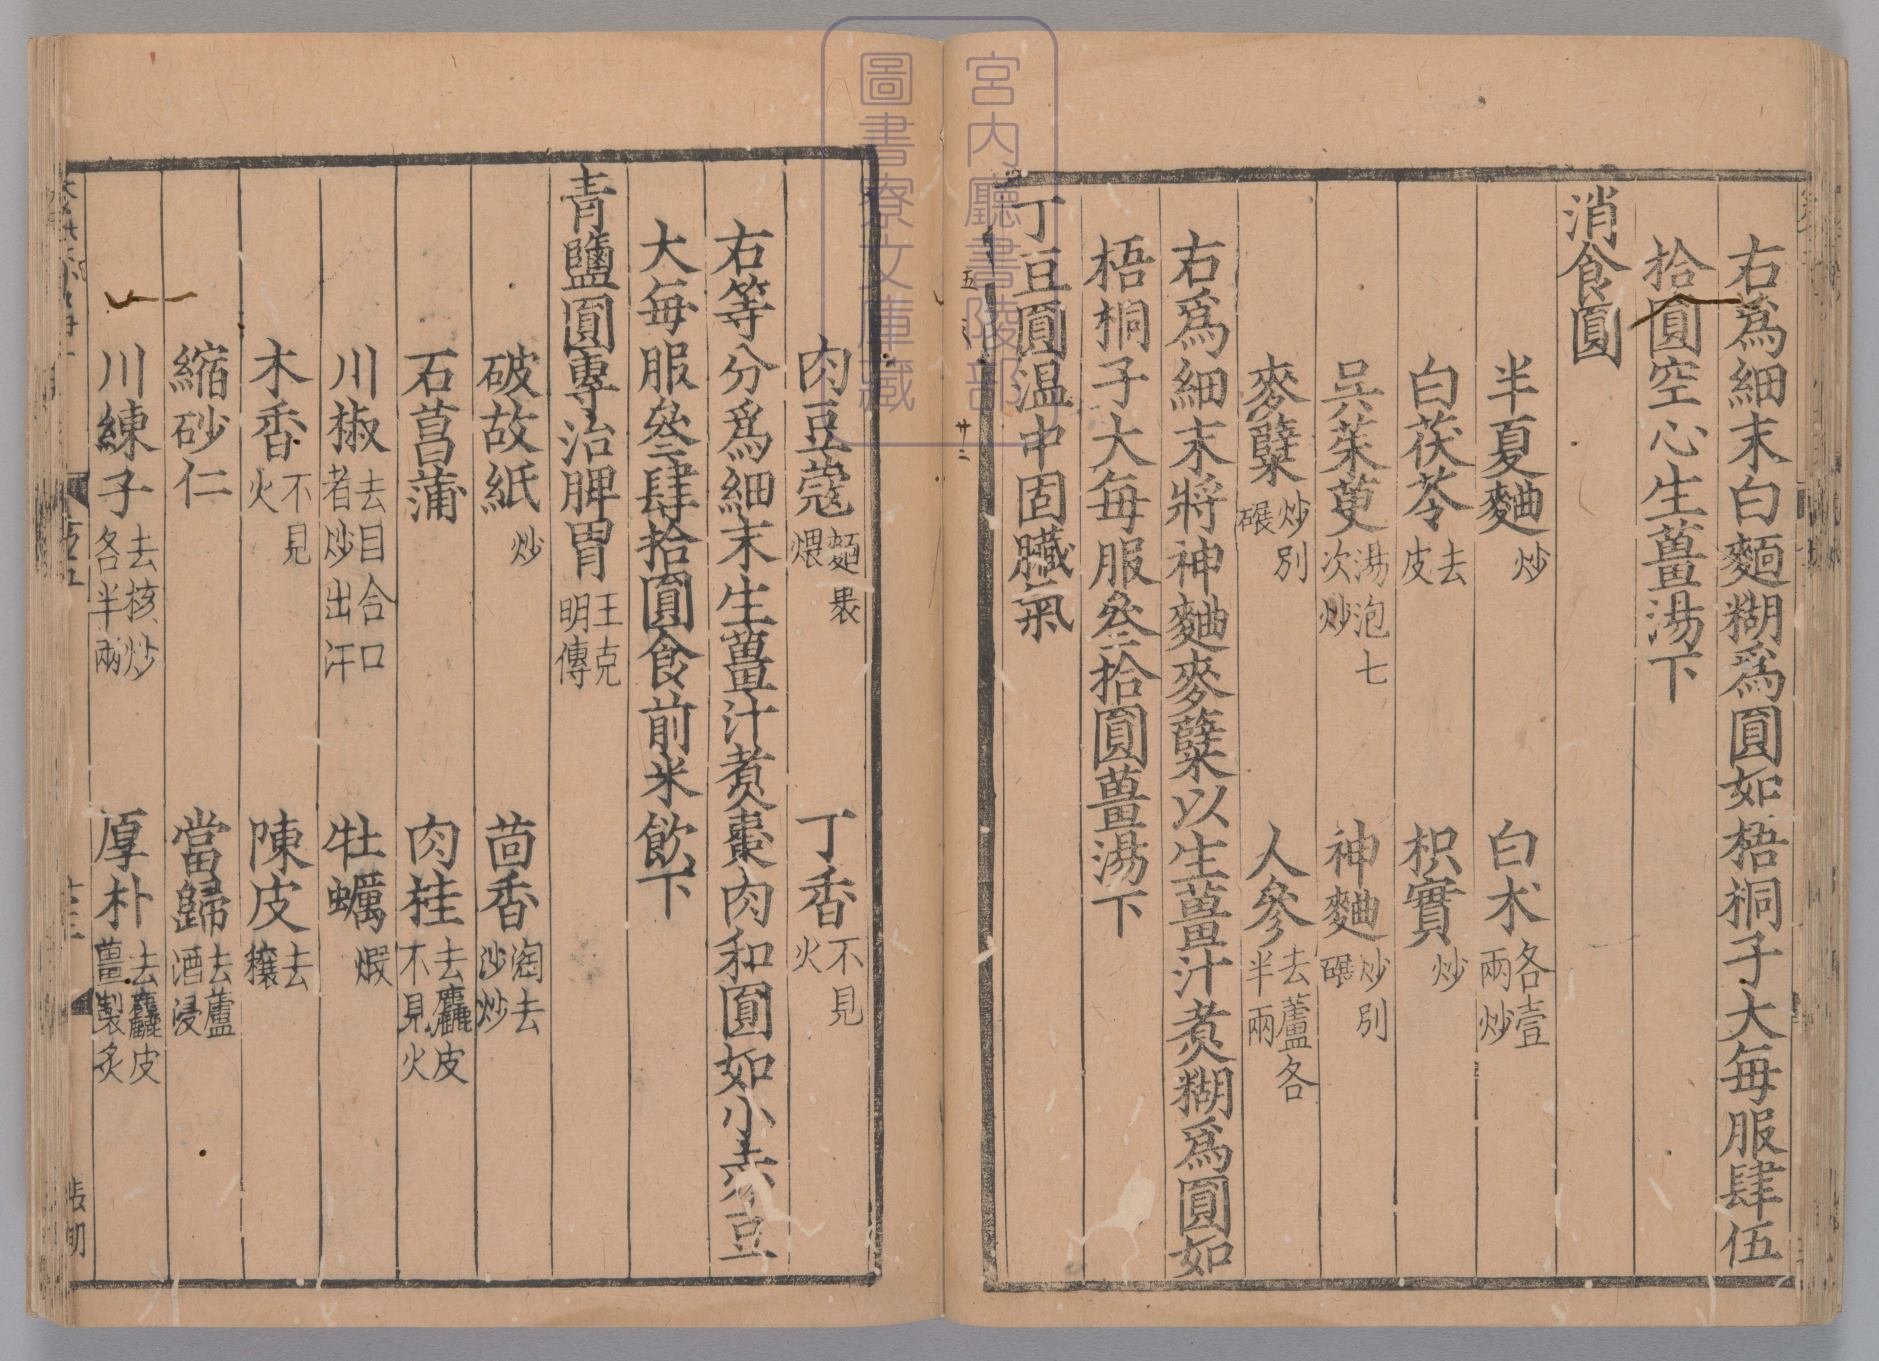 右爲細末白麵糊爲圓如梧桐子大每服肆伍
拾圓空心生薑湯下
消食圓
半夏麯炒 白术各壹兩炒
白茯苓去皮 枳實炒
吳茱萸湯泡七次炒 神麯炒別碾
麥糵炒別碾 人參去蘆各半兩
右爲細末將神麯麥糵以生薑汁煮糊爲圓如
梧桐子大每服叄拾圓薑湯下
丁豆圓温中固臟氣
肉豆蔻麵裹煨 丁香不見火
右等分爲細末生薑汁煮棗肉和圓如小赤豆
大每服叄肆拾圓食前米飲下
青鹽圓專治脾胃王克明傳
破故紙炒 茴香淘去沙炒
石菖蒲 肉桂去麤皮不見火
川椒去目合口者炒出汗 牡蠣煆
木香不見火 陳皮去穰
縮砂仁 當歸去蘆酒浸
川練子去核炒各半兩 厚朴去麤皮薑製炙
宮内廳書陵部
圖書寮文庫藏